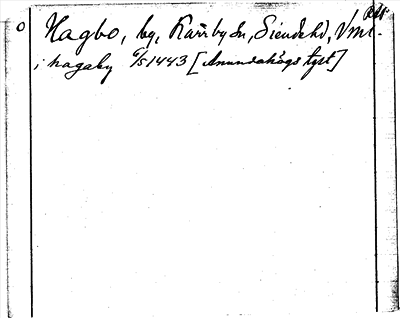 Hagbo, bg, Kärrby Sn, Siende hd, Vml.
i hagaby 6/5 1443 [Anundahögs tgst]